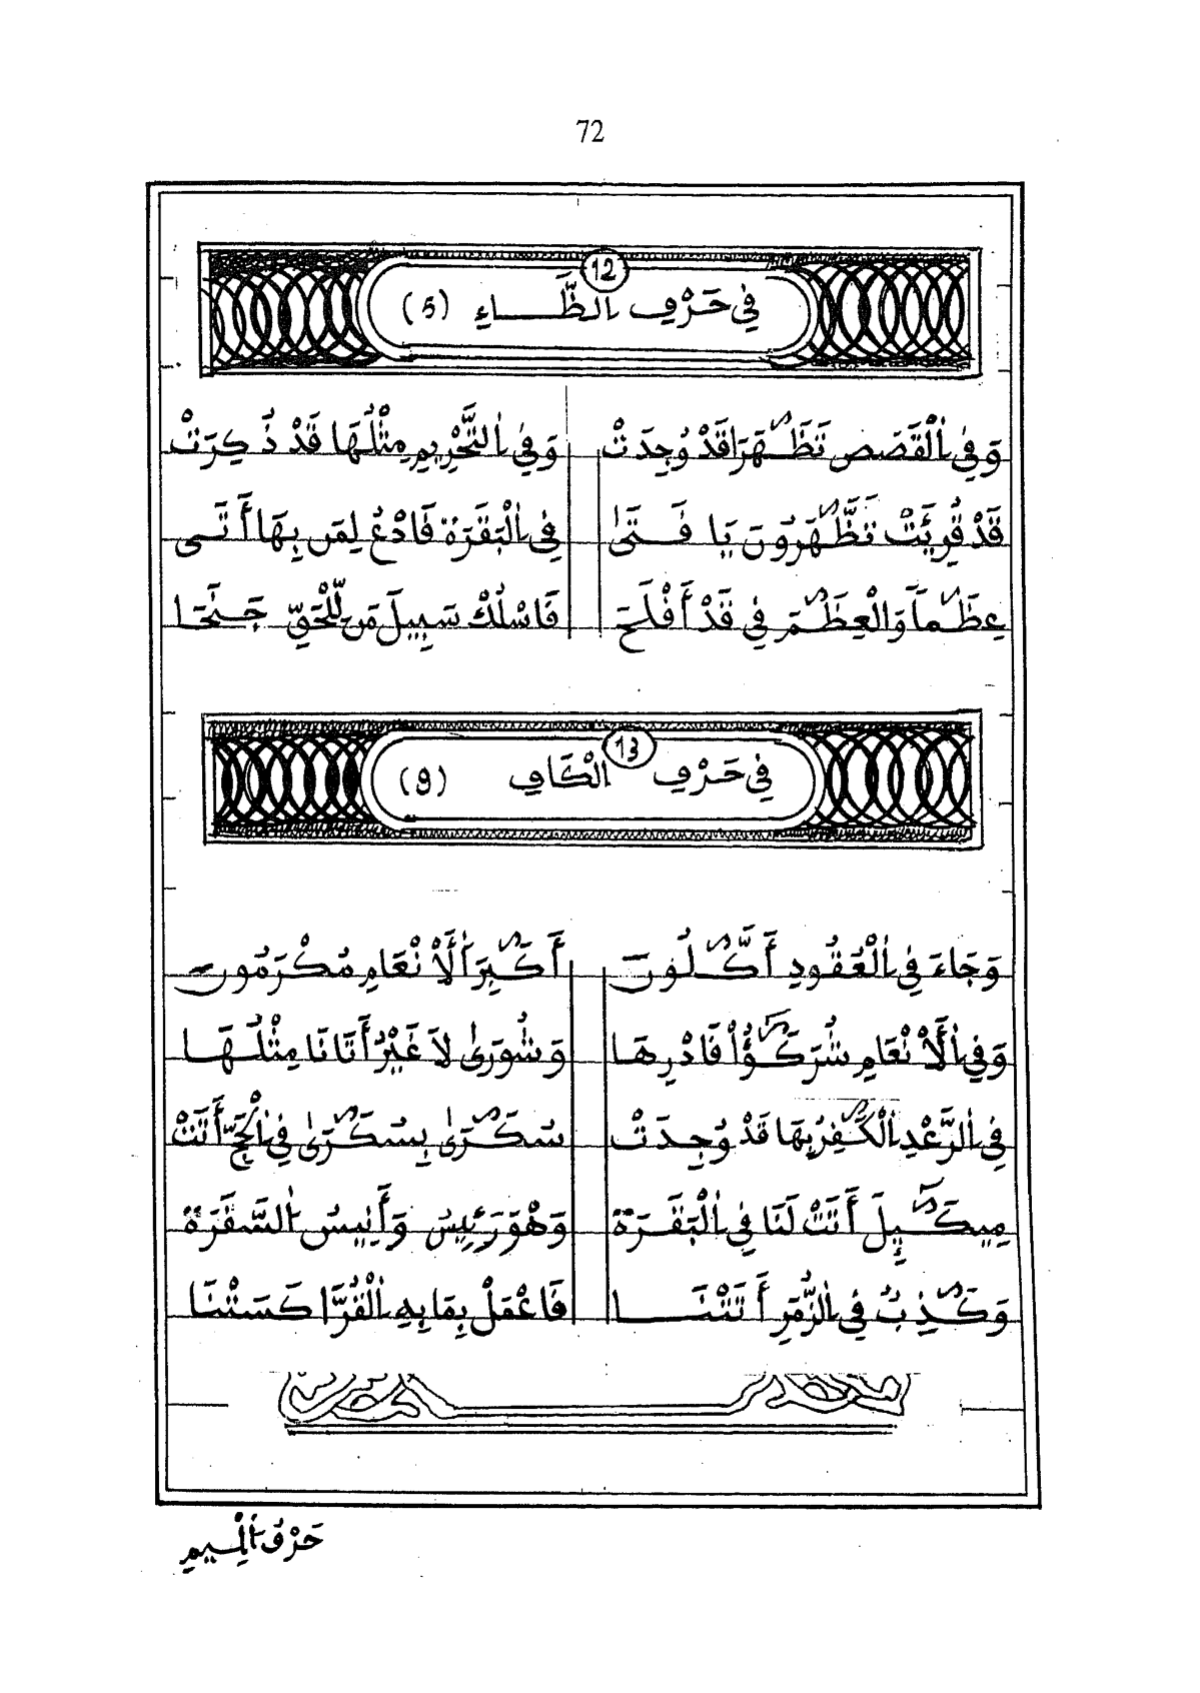 72
12
فِي حَرْفِ الظَّاءِ (5)
وَفِي اْلْقَصَصِ تَظَٰهَرَا قَدْ وُجِدَتْ وَفِي اْلتَّحْرِيمِ مِثْلُهَا قَدْ ذُكِرَتْ
قَدْ قُرِيَتْ تَظَّٰهَرُونَ يَا فَتَىٰ فِي اْلْبَقَرَةِ فَادْعُ لِمَن بِهَا أَتَى
عِظَٰماً وَالْعِظَٰمَ فِي قَدْ أَفْلَحَ فَاسْلُكْ سَبِيلَ مَن لِّلْحَقِّ جَنَحَا
13
فِي حَرْفِ الْكَافِ (9)
وَجَاءَ فِي اْلْعُقُودِ أَكَّٰلُونَ أَكَٰبِرَ اْلَأنْعَامِ مُكْرَمُونَ
وَفِي اْلَأنْعَامِ شُرَكَٰؤُاْ فَادْرِهَا وَشُورَىٰ لَا غَيْرُ أَتَانَا مِثْلُهَا
فِي اْلرَّعْدِ اْلْكَٰفِرُ بِهَا قَدْ وُجِدَتْ سُكَٰرَىٰ بِسُكَٰرَىٰ فِي اْلْحَجِّ أَتَتْ
مِيكَٰٓئِيلَ أَتَتْ لَنَا فِي اْلْبَقَرَة وَهْوَ رَئِيسُ وَأَنِيسُ اْلسَّفَرَة
وَكَٰذِبٌ فِي اْلزُّمَرِ أَتَتْنَا فَاعْمَلْ بِمَا بِهِ اْلْقُرَّا كَسَتْنَا
حَرْفُ اْلْمِيمِ